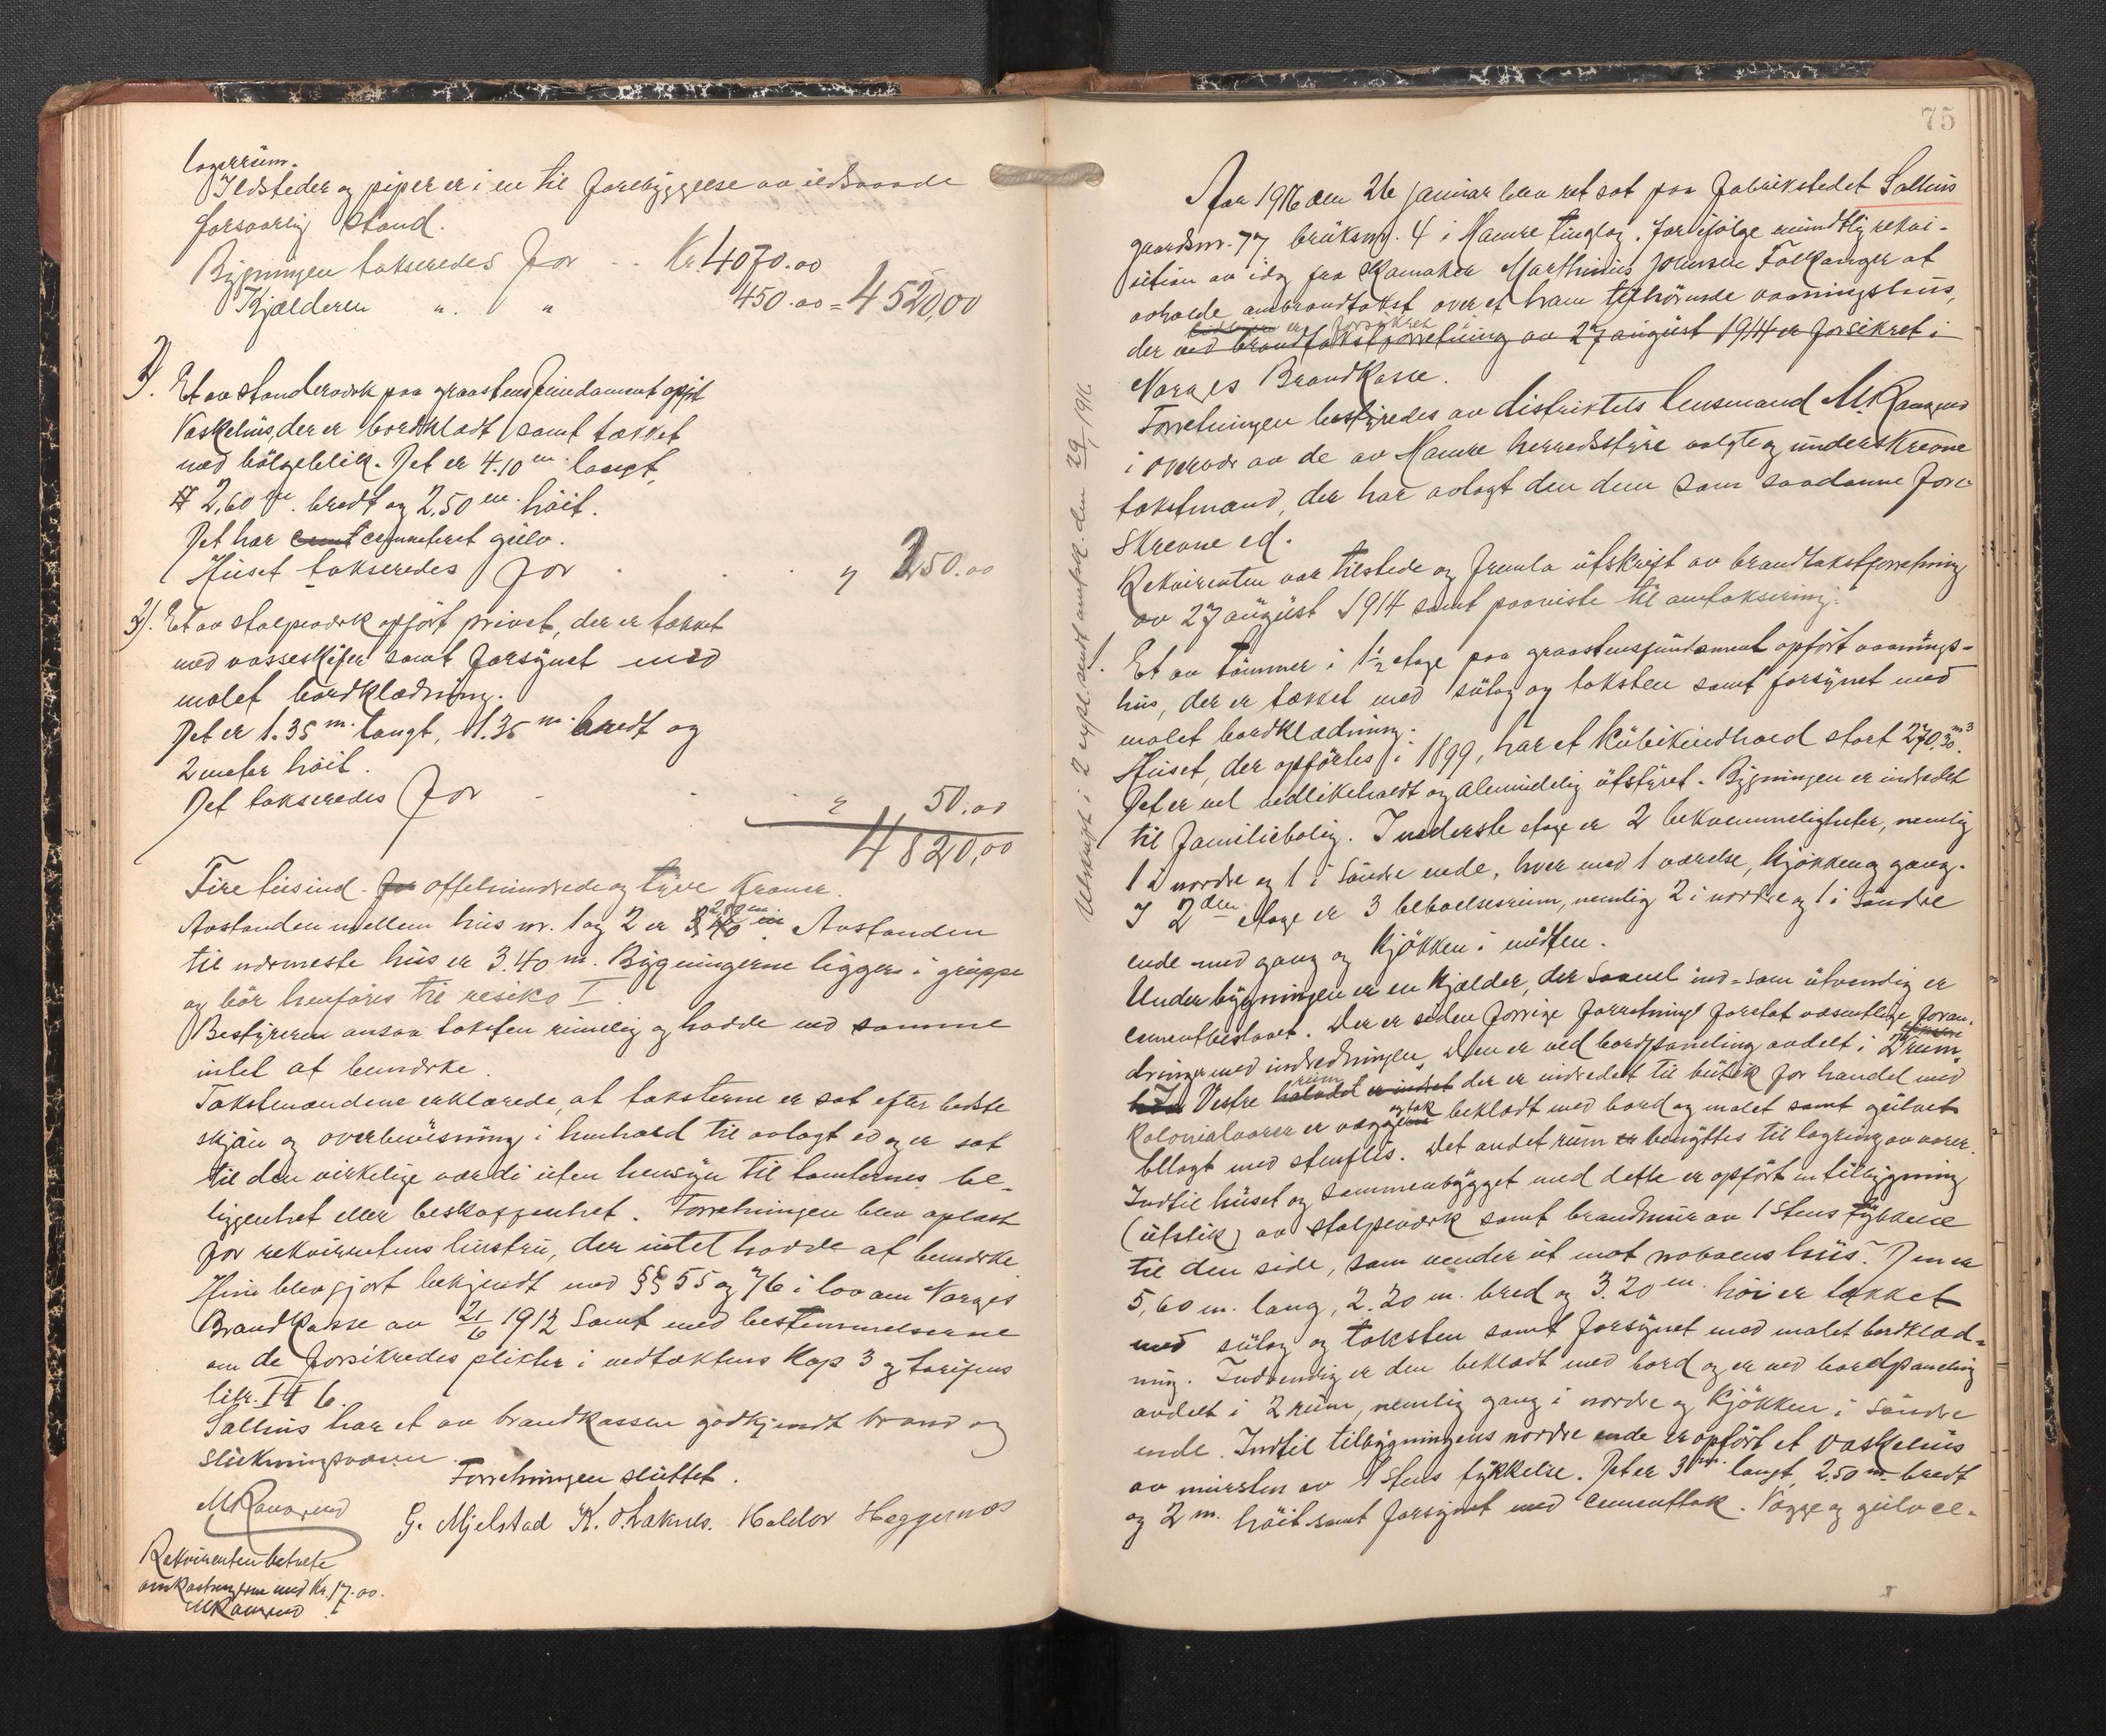 lagerrum.
Ildsteder og piper er i en til forebyggelse av ildsvaade
forsvarlig stand.
Bygningen takseredes for Kr. 4070.00
Kjælderen " " 450.00 = 4520,00
2). Et av stenderverk paa graastensfundament opført
Vaskehus, der er bordklædt samt tækket
med bølgeblik. Det er 4.10 m. langt,
2,60 m. bredt og 2.50 m. høit.
Det har cementeret gulv.
Huset takseredes for " 250.00
3). Et av stolpeverk opført privet, der er tækket
med vosseskifer samt forsynet med
malet bordklædning.
Det er 1.35 m. langt, 1.35 m. bredt og
2 meter høit.
Det takseredes for " 50.00
4820,00
Fire tusind - for ottehundrede og tyve Kroner.
Avstanden mellem hus nr. 1 og 2 er 2,80 m. Avstanden
til nærmeste hus er 3.40 m. Bygningerne ligger i gruppe
og bör henføres til resiko I.
Bestyreren ansaa taksten rimelig og hadde ved samme
intet at bemærke.
Takstmændene erklærede, at taksterne er sat efter bedste
skjøn og overbevisning i henhold til avlagt ed og er sat
til den virkelige værdi uten hensyn til tomternes be-
liggenhet eller beskaffenhet. Forretningen blev oplæst
for rekvirentens hustru, der intet hadde at bemærke
Hun blev gjort bekjendt med §§ 55 og 76 i lov om Norges
Brandkasse av 21/6 1912 samt med bestemmelserne
om de forsikredes plikter i vedtæktens Kap 3 og tarifens
litr. II 6.
Salhus har et av brandkassen godkjendt brand og
slukningsvæsen.
Forretningen sluttet.
M Ramsrud G. Mjelstad K. O. Laknes. Haldor Heggernes
Rekvirenten betalte
omkostningerne med Kr. 17.00.
M Ramsrud
75
Aar 1916 den 26 januar blev ret sat paa Fabrikstedet Salhus
gaardsnr. 77 bruksnr. 4 i Hamre tinglag. Forifølge mundtlig rekvi-
sition av idag fra Skomaker Marthinius Johnsen Falkanger at
avholde ombrandtakst over et ham tilhörende vaaningshus,
er forsikret i
der ved brandtakstforretning av 27 august 1914 er forsikret i
Norges Brandkasse.
Forretningen bestyredes av distriktets lensmand M. Ramsrud
i overvær av de av Hamre herredsstyre valgte og underskrevne
takstmænd, der har avlagt den dem som saadanne fore-
skrevne ed.
Rekvirenten var tilstede og fremla utskrift av brandtakstforretning
av 27 august 1914 samt paaviste til omtaksering:
1. Et av tömmer i 1½ etage paa graastensfundament opfört vaanings-
hus, der er tækket med sutag og taksten samt forsynet med
malet bordklædning.
Huset, der opførtes i 1899, har et kubikindhold stort 270,30 m³.
Det er vel vedlikeholdt og almindelig utstyret. Bygningen er indredet
til familiebolig. I nederste etage er 2 bekvemmeligheter, nemlig
1 i nordre og 1 i söndre ende, hver med 1 værelse, kjøkken og gang.
I 2den etage er 3 beboelsesrum, nemlig 2 i nordre og 1 i söndre
ende med gang og Kjökken i midten.
Under bygningen er en kjælder, der saavel ind- som utvendig er
cementbeslaaet. Der er siden forrige forretning foretat væsentlige foran-
dringer med indredningen. Den er ved bordpaneling avdelt i 2 rum.
Vestre rum der er indredet til butik for handel med
Kolonialvarer er væggene og tak beklædt med bord og malet samt gulvet
bllagt med stenflis. Det andet rum benyttes til lagring av varer.
Indtil huset og sammenbygget med dette er opfört en tilbygning
(utstik) av stolpeverk samt brandmur av 1 stens tykkelse
til den side, som vender ut mot naboens hus. Den er
5,60 m. lang, 2.20 m. bred og 3.20 m. höi er takket
med sutag og taksten samt forsynet med malet bordklæd-
ning. Indvendig er den beklædt med bord og er ved bordpaneling
avdelt i 2 rum, nemlig gang i nordre og Kjökken i söndre
ende. Indtil tilbygningens nordre ende er opfört et vaskehus
av mursten av 1 stens tykkelse. Det er 3 m. langt, 2.50 m. bredt
og 2 m. höit samt forsynet med cementtak. Vægge og gulv ce-
Utskrift i 2 expl. sendt amtsk. den 29/1 1916.